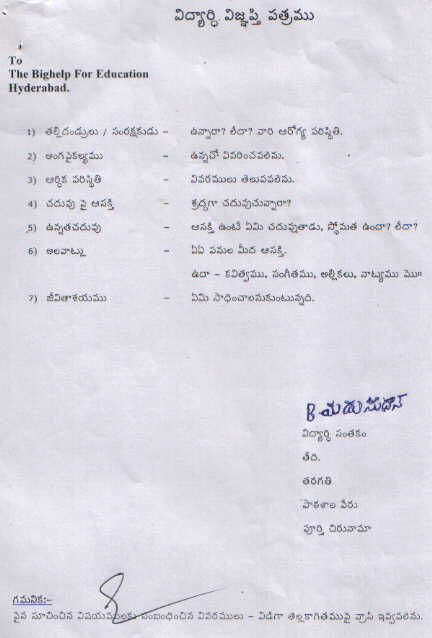 విద్యార్ధి విజ్ఞప్తి పత్రము
To
The Bighelp For Education
Hyderabad.
1) తల్లిదండ్రులు / సంరక్షకుడు – ఉన్నారా? లేదా? వారి ఆరోగ్య పరిస్థితి.
2) అంగవైకల్యము – ఉన్నచో వివరించవలెను.
3) ఆర్ధిక పరిస్థితి – వివరములు తెలుపవలెను.
4) చదువు పై ఆసక్తి – శ్రద్ధగా చదువుచున్నారా?
5) ఉన్నతచదువు – ఆసక్తి ఉంటే ఏమి చదువుతాడు, స్థోమత ఉందా? లేదా?
6) అలవాట్లు – ఏఏ పనుల మీద ఆసక్తి.
ఉదా – కవిత్వము, సంగీతము, అల్లికలు, నాట్యము మొ॥
7) జీవితాశయము – ఏమి సాధించాలనుకుంటున్నది.
B మధుసుధాన్
విద్యార్ధి సంతకం
తేది.
తరగతి
పాఠశాల పేరు
పూర్తి చిరునామా
గమనిక:-
పైన సూచించిన విషయములకు సంబంధించిన వివరములు – విడిగా తెల్లకాగితముపై వ్రాసి ఇవ్వవలెను.